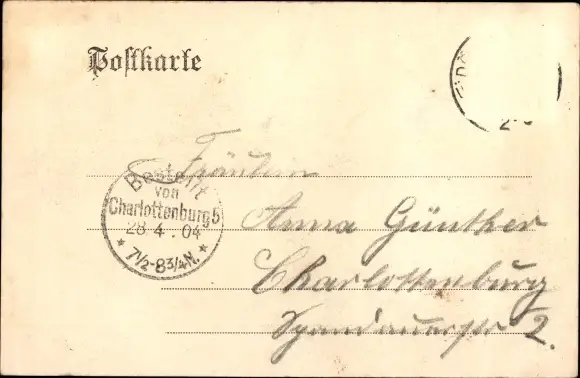 Postkarte
Fräulein
Bestellt
von
Charlottenburg 5
28 4. 04
* 7½-8¾N. *
Anna Günther
Charlottenburg
Spandauerstr 2.